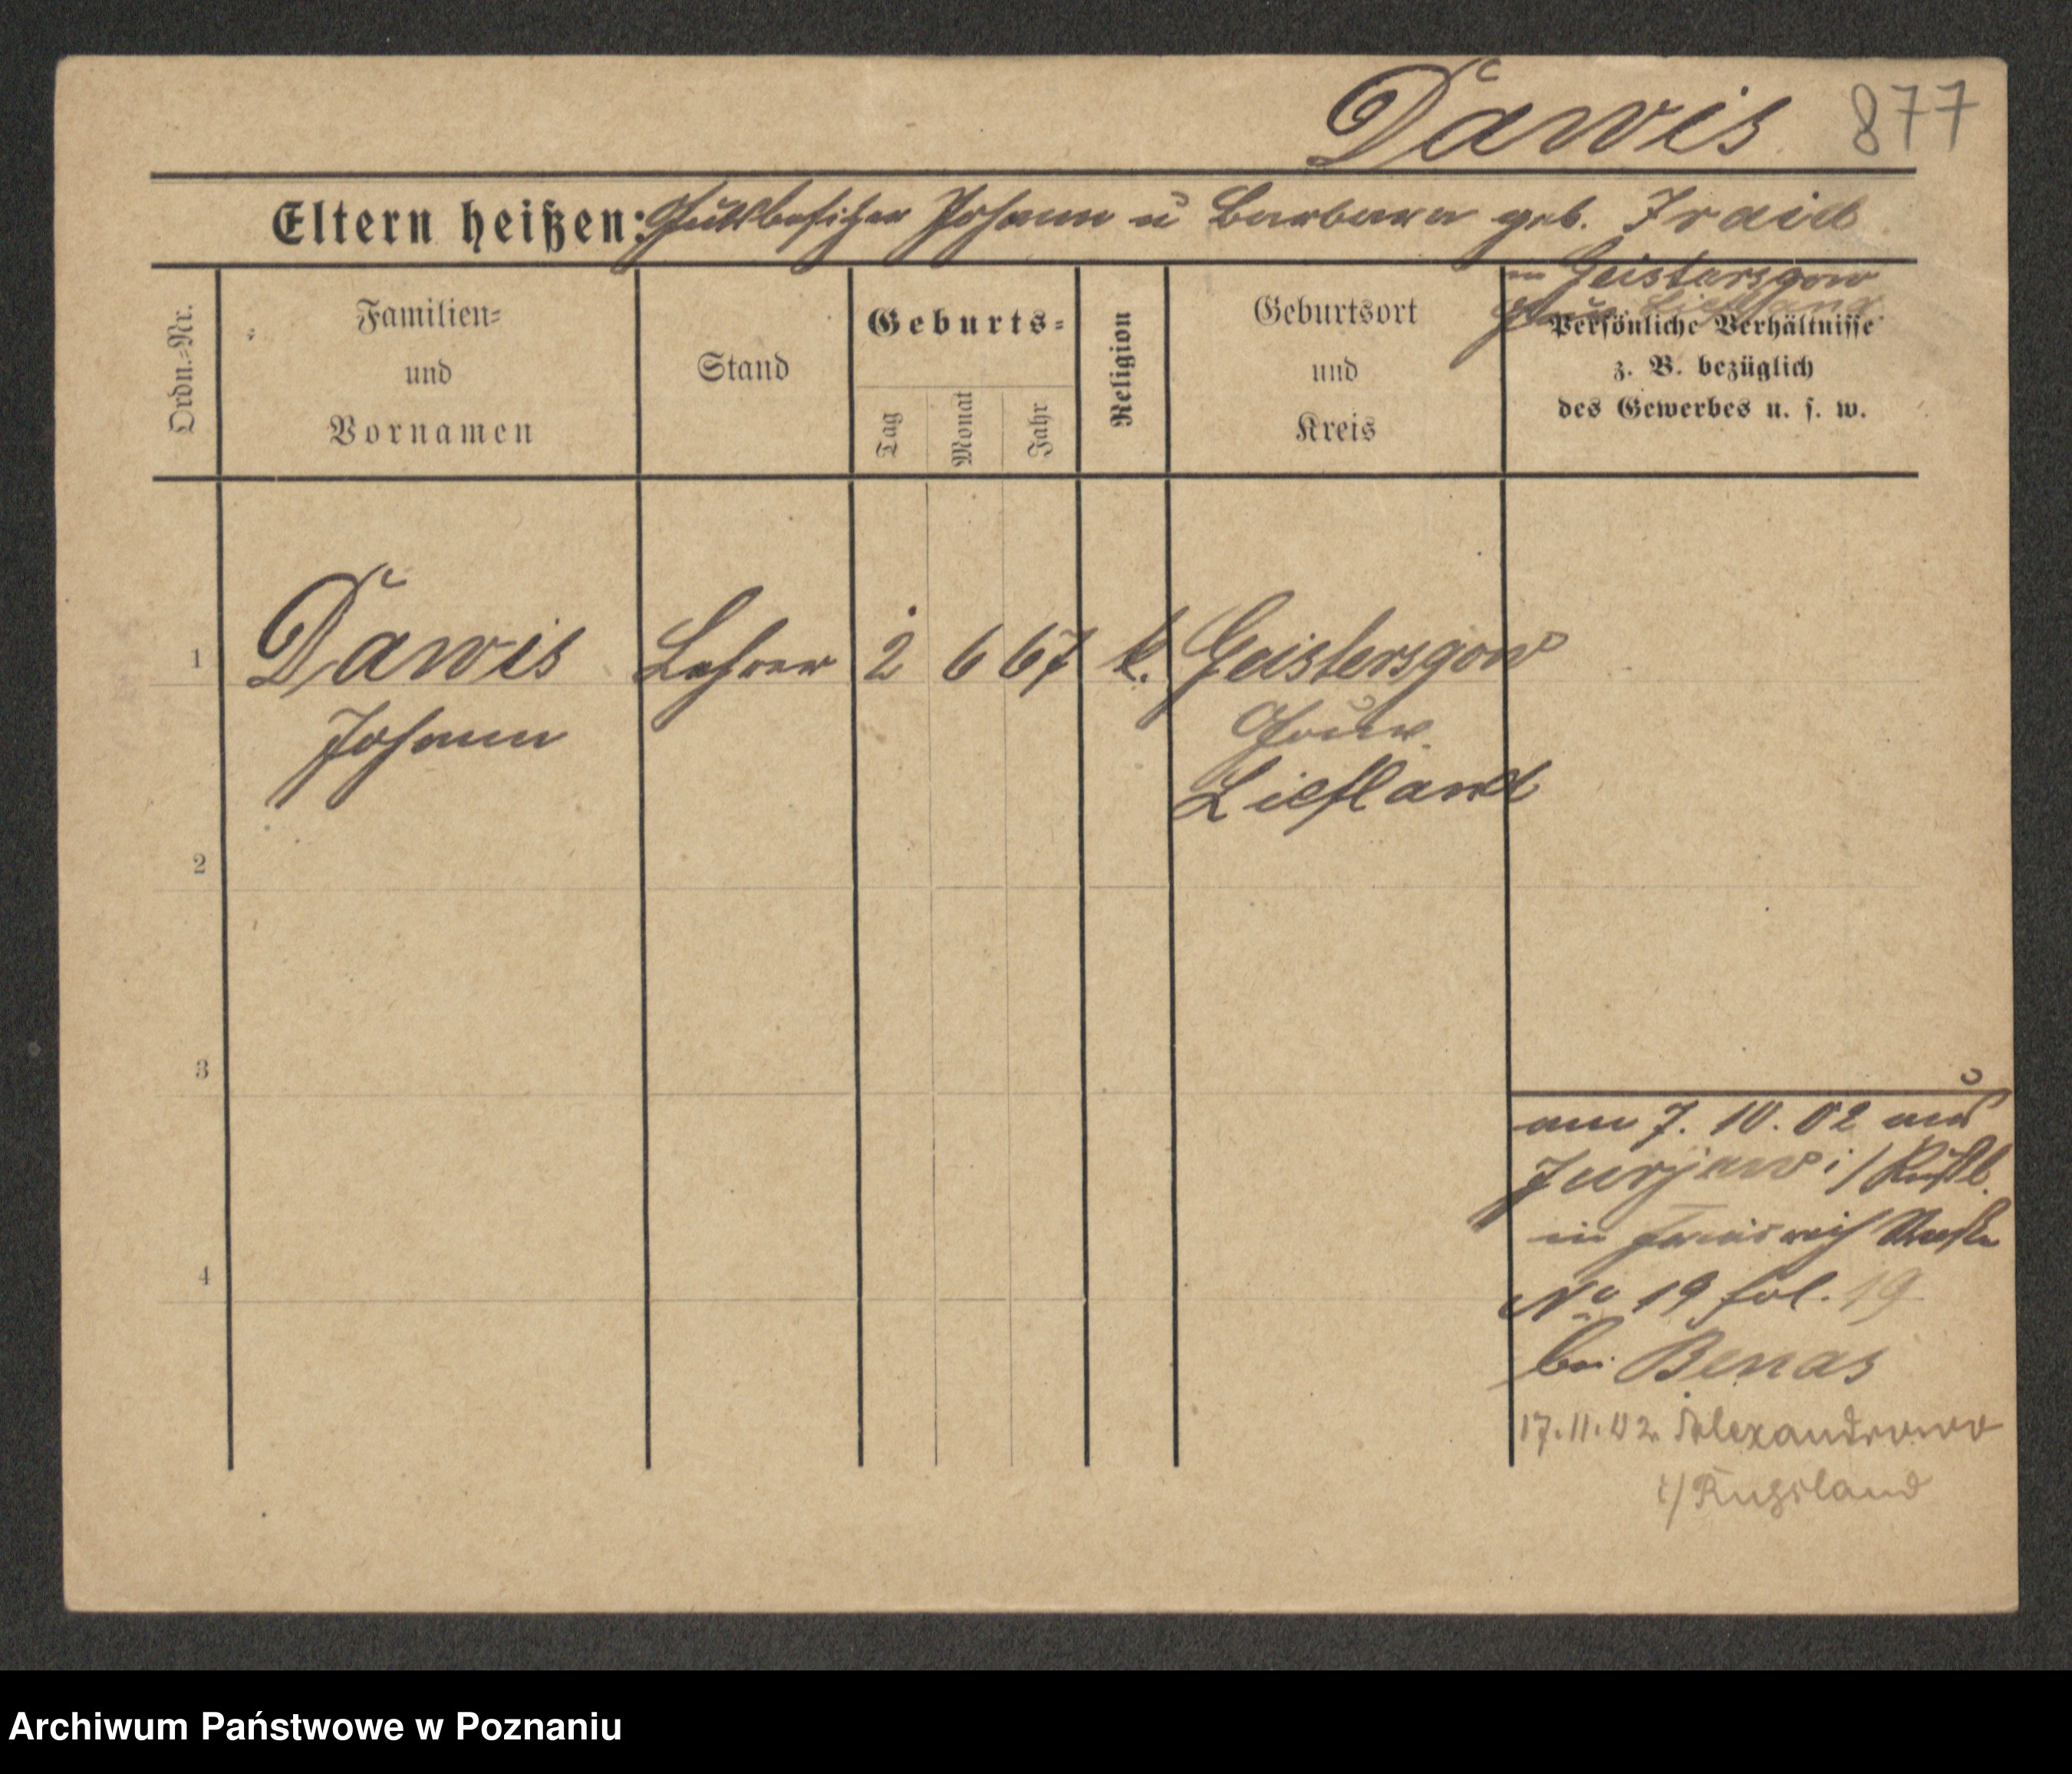 Dawis 877
Eltern heißen: Gutsbesitzer Johann u Barbara geb. Fraid
in Geistersgow
Gouv. Liefland
Ordn.=Nr.
Familien= und Vornamen
Stand
Geburts=
Tag
Monat
Jahr
Religion
Geburtsort und Kreis
Persönliche Verhältnisse
z. B. bezüglich
des Gewerbes u. s. w.
1 Dawis Lehrer 2 6 67 k. Geistersgow
Johann Gouv.
Liefland
2
3
4
am 7. 10. 02 aus
Jurjew i/Rußl.
in
No 19 fol. 19
bei Benas
17.11.02 Alexandrowo
i/Russland
Archiwum Państwowe w Poznaniu